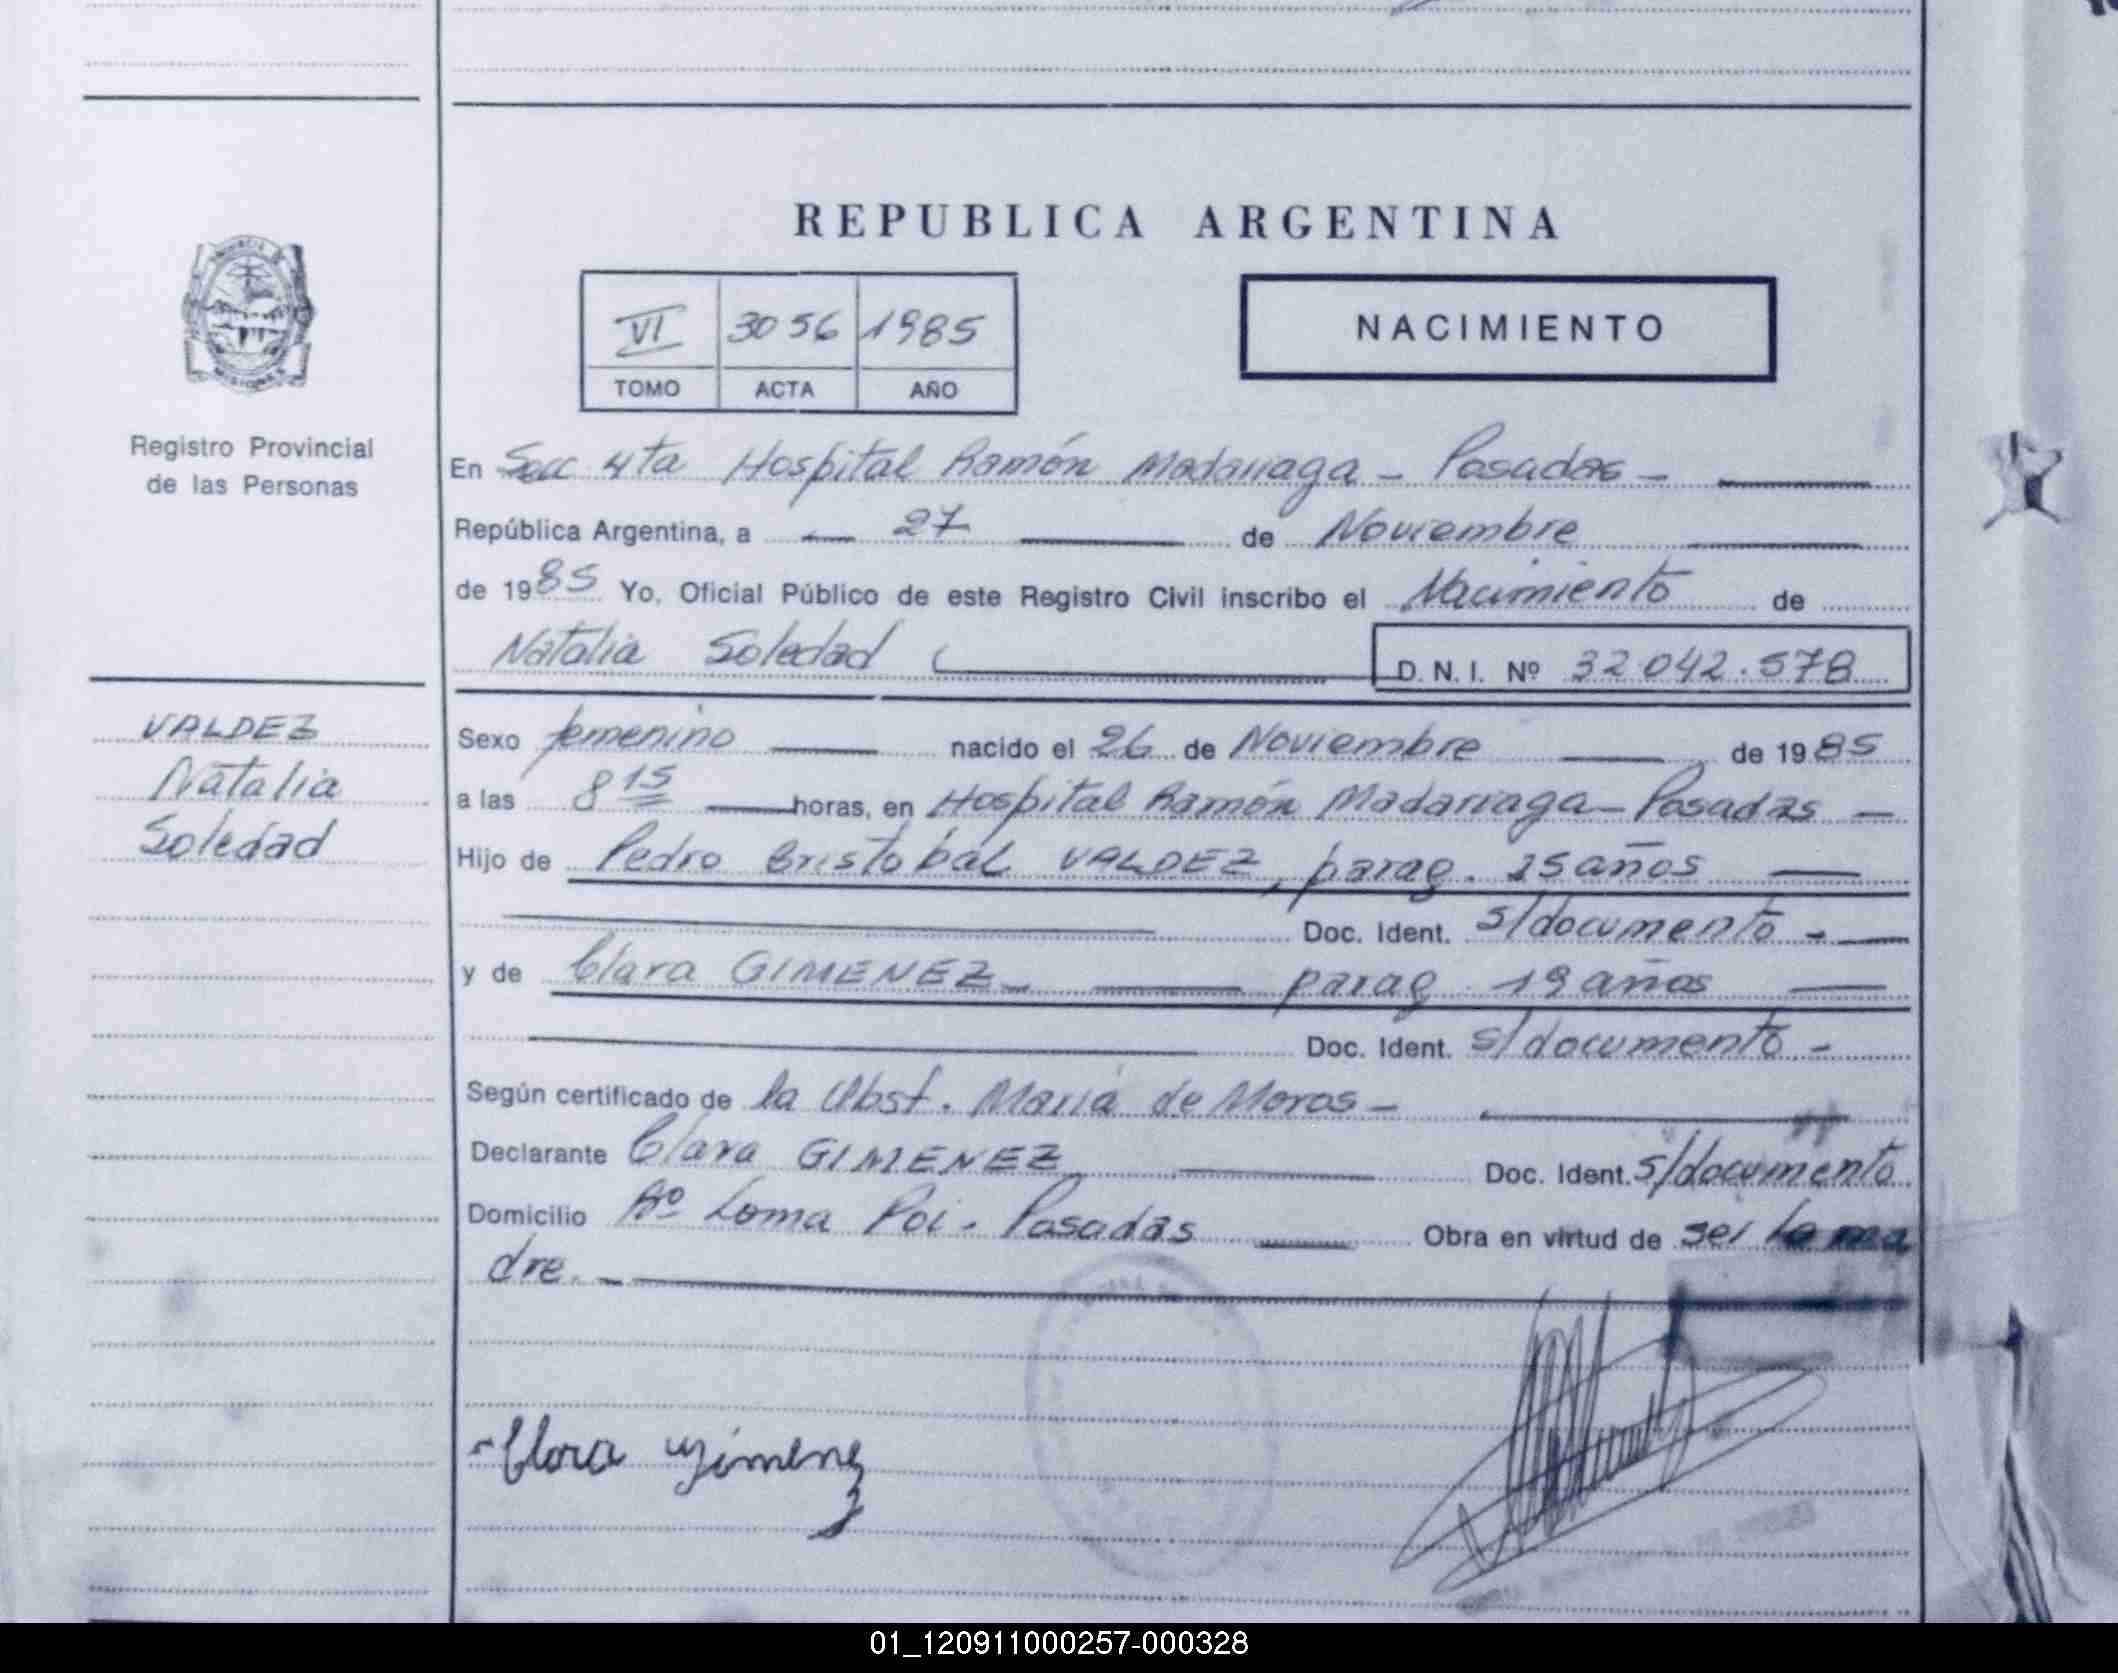 REPUBLICA ARGENTINA
VI 3056 1985
TOMO ACTA AÑO
NACIMIENTO
Registro Provincial
de las Personas
VALDEZ
Natalia
Soledad
En Secc 4ta Hospital Ramón Madariaga - Posadas -
República Argentina, a 27 de Noviembre
de 1985 Yo, Oficial Público de este Registro Civil inscribo el Nacimiento de
Natalia Soledad D. N. I. Nº 32042.578
Sexo femenino nacido el 26 de Noviembre de 1985
a las 8 15 horas, en Hospital Ramón Madariaga - Posadas -
Hijo de Pedro Cristobal VALDEZ, parag. 25 años
Doc. Ident. s/documento -
y de Clara GIMENEZ - parag 19 años
Doc. Ident. s/documento -
Según certificado de la Obst. María de Moros -
Declarante Clara GIMENEZ Doc. Ident. s/documento
Domicilio Bº Loma Poi - Posadas Obra en virtud de ser la ma
dre. -
Clara Jimenez
01_120911000257-000328